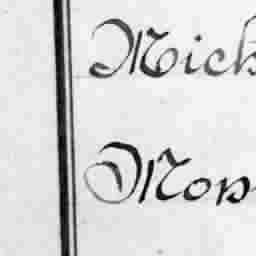 Mick
Mon